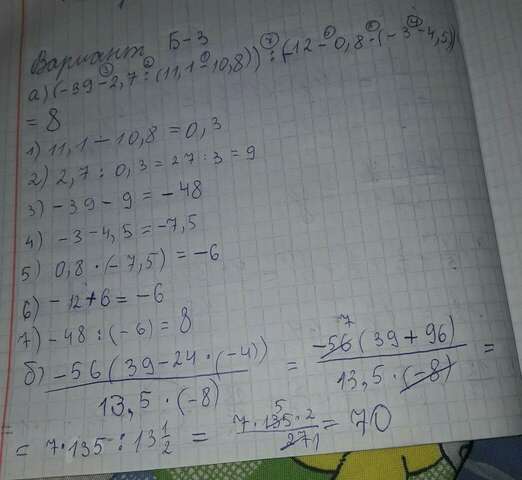 Вариант Б-3
а) (-39-2,7:(11,1-10,8)):(-12-0,8·(-3-4,5))
= 8
1) 11,1-10,8=0,3
2) 2,7:0,3=27:3=9
3) -39-9=-48
4) -3-4,5=-7,5
5) 0,8·(-7,5)=-6
6) -12+6=-6
7) -48:(-6)=8
б) -56(39-24·(-4)) / 13,5·(-8) = -56(39+96) / 13,5·(-8) =
= 7·135:13 1/2 = 7·135·2 / 27 = 70